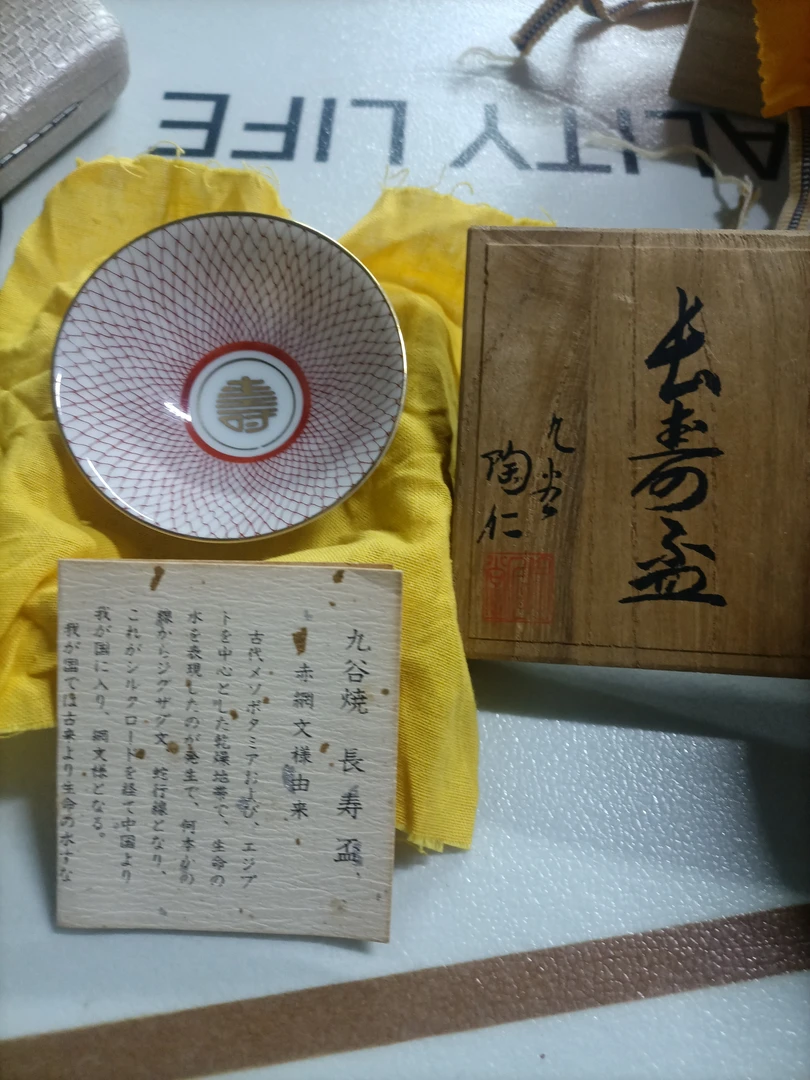 ALITY LIFE
寿
長寿盃
九谷
陶仁
九谷焼 長寿盃
赤網文様由来
古代メソポタミアおよび、エジプ
トを中心とした乾燥地帯で、生命の
水を表現したのが発生で、何本かの
線からジグザグ文 蛇行線となり、
これがシルクロードを経て中国より
我が国に入り、網文様となる。
我が国では古来より生命の水すな